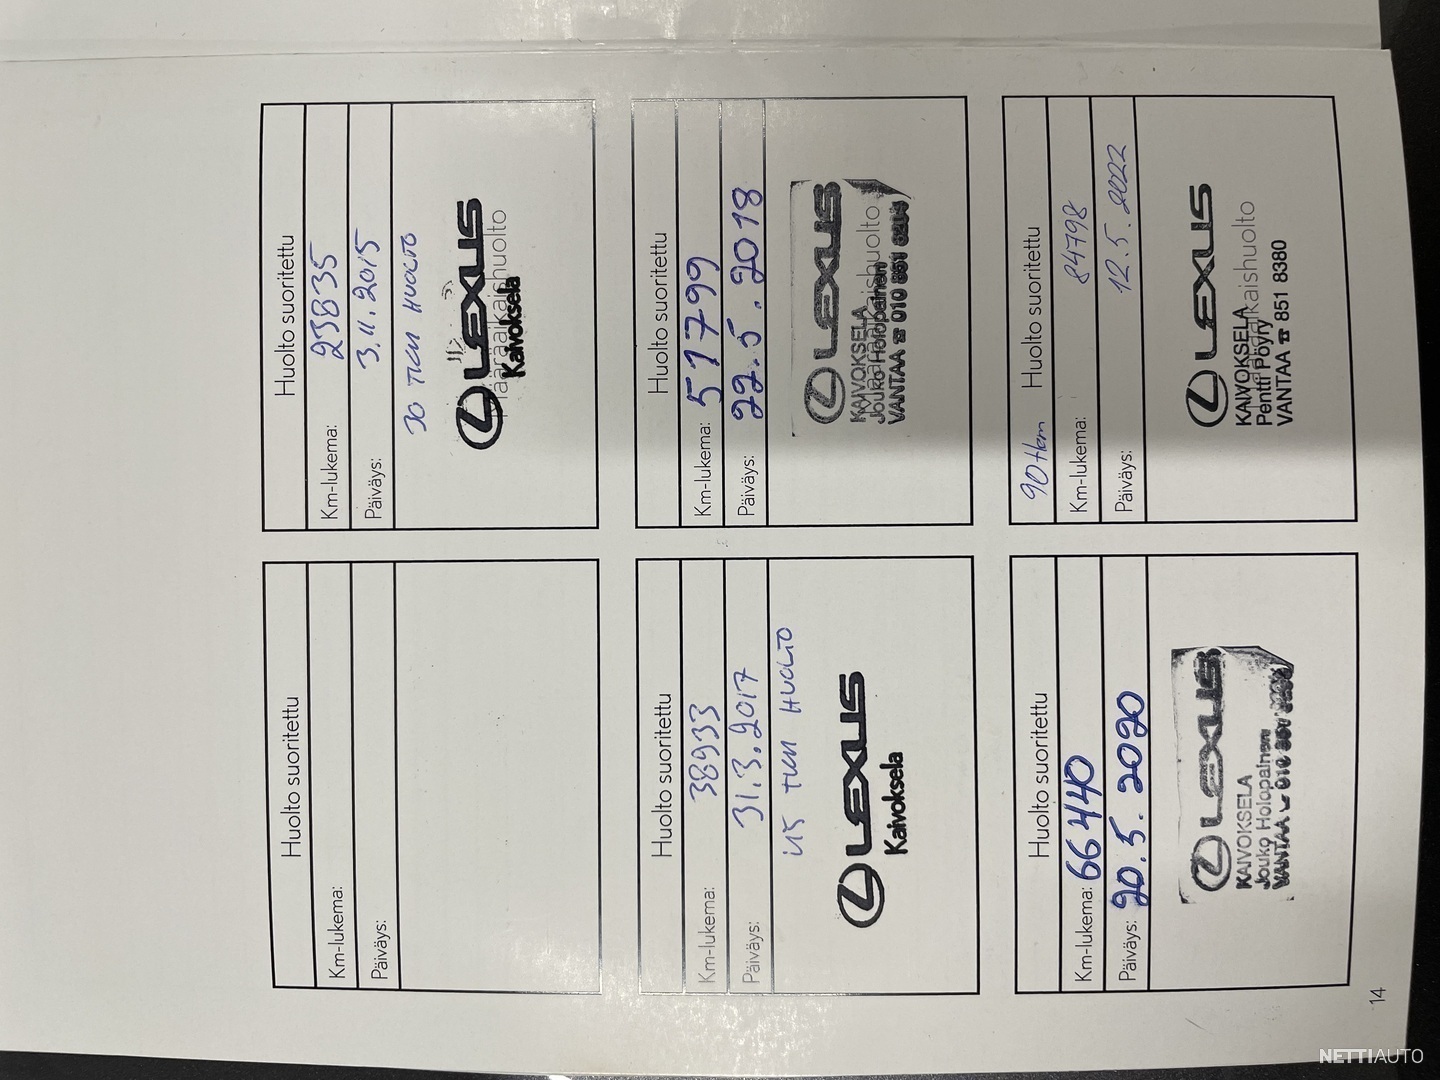 Huolto suoritettu
Km-lukema:
Päiväys:
Huolto suoritettu
Km-lukema: 23835
Päiväys: 3.11.2015
30 TKM HUOLTO
LEXUS
Määräaikaishuolto
Kaivoksela
Huolto suoritettu
Km-lukema: 38933
Päiväys: 31.3.2017
45 TKM HUOLTO
LEXUS
Kaivoksela
Huolto suoritettu
Km-lukema: 51799
Päiväys: 22.5.2018
LEXUS
Määräaikaishuolto
KAIVOKSELA
Jouko Holopainen
VANTAA ☎ 010 851
Huolto suoritettu
Km-lukema: 66440
Päiväys: 20.5.2020
LEXUS
KAIVOKSELA
Jouko Holopainen
VANTAA
90tkm Huolto suoritettu
Km-lukema: 84798
Päiväys: 12.5.2022
LEXUS
Määräaikaishuolto
KAIVOKSELA
Pentti Pöyry
VANTAA ☎ 851 8380
14
NETTIAUTO